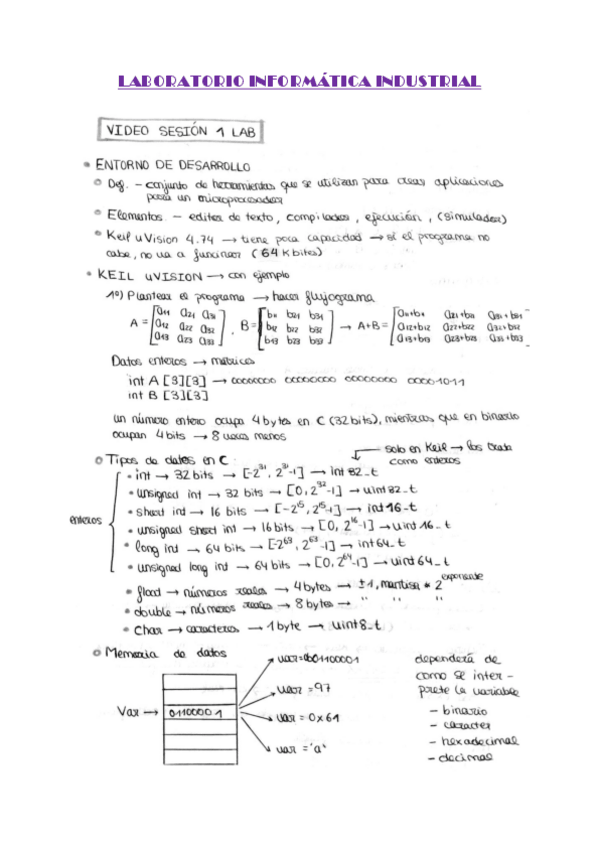 LABORATORIO INFORMÁTICA INDUSTRIAL
VIDEO SESIÓN 1 LAB
• ENTORNO DE DESARROLLO
• Def. - conjunto de herramientas que se utilizan para crear aplicaciones
para un microprocesador
• Elementos - editor de texto, compilador, ejecución, (simulador)
• Keil uVision 4.74 → tiene poca capacidad → si el programa no
cabe, no va a funcionar (64 Kbites)
• KEIL uVISION → con ejemplo
1º) Plantear el programa → hacer flujograma
A = [a11 a21 a31
a12 a22 a32
a13 a23 a33], B = [b11 b21 b31
b12 b22 b32
b13 b23 b33] → A+B = [a11+b11 a21+b21 a31+b31
a12+b12 a22+b22 a32+b32
a13+b13 a23+b23 a33+b33]
Datos enteros → matrices
int A [3][3] → 00000000 00000000 00000000 00001011
int B [3][3]
un número entero ocupa 4 bytes en C (32 bits), mientras que en binario
ocupan 4 bits → 8 veces menos
○ Tipos de datos en C
solo en Keil → los trata
como enteros
enteros
• int → 32 bits → [-2^31, 2^31-1] → int 32_t
• unsigned int → 32 bits → [0, 2^32-1] → uint 32_t
• short int → 16 bits → [-2^15, 2^15-1] → int 16-t
• unsigned short int → 16 bits → [0, 2^16-1] → uint 16_t
• long int → 64 bits → [-2^63, 2^63-1] → int 64_t
• unsigned long int → 64 bits → [0, 2^64-1] → uint 64_t
• float → números reales → 4 bytes → ±1, mantisa * 2^exponente
• double → números reales → 8 bytes → " " "
• char → caracteres → 1 byte → uint8_t
○ Memoria de datos
Var → 01100001
var=0b01100001
var = 97
var = 0x61
var = 'a'
dependerá de
como se inter-
prete la variable
- binario
- caracter
- hexadecimal
- decimal